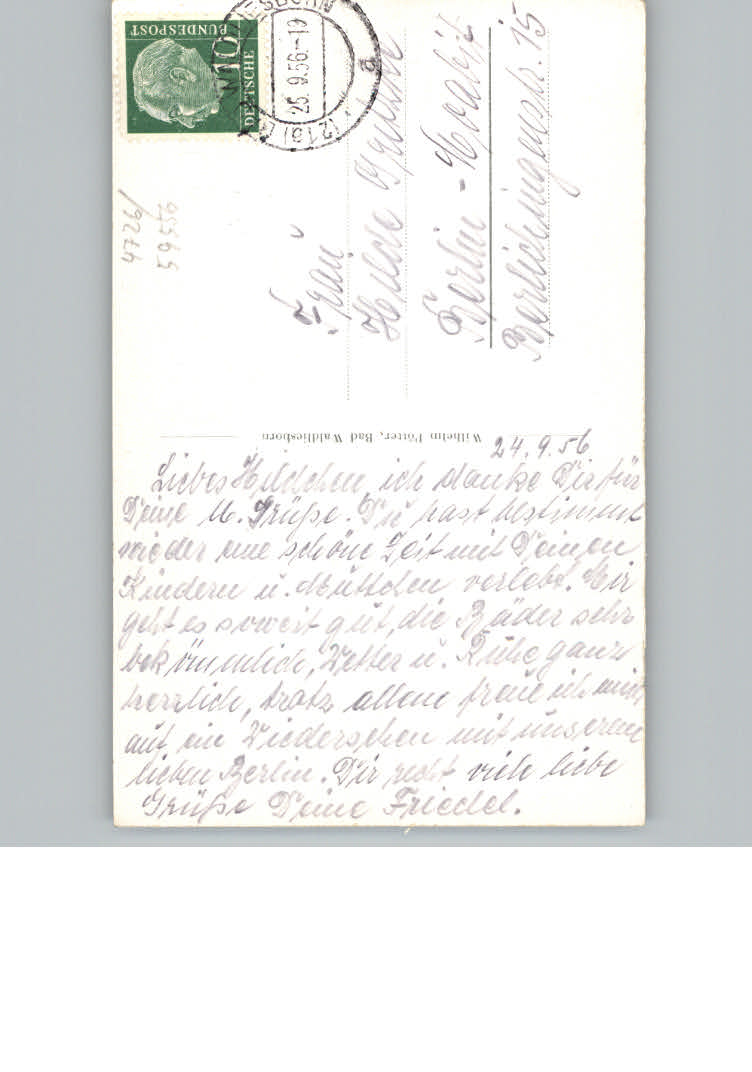 DEUTSCHE
BUNDESPOST
10
25.9.56-19
(21b)
a
4726/
59556
Frau
Hilde
Berlin - Moabit
Berlichingenstr. 15
Wilhelm Pötter, Bad Waldliesborn
24.9.56
Liebes Hildchen ich danke Dir für
Deine lb. Grüße. Du hast bestimmt
wieder eine schöne Zeit mit Deinen
Kindern u. Muttchen verlebt. Mir
geht es soweit gut, die Bäder sehr
bekömmlich, Wetter u. Ruhe ganz
herzlich, trotz allem freue ich mich
auf ein Wiedersehen mit unserem
lieben Berlin. Dir recht viele liebe
Grüße Deine Friedel.